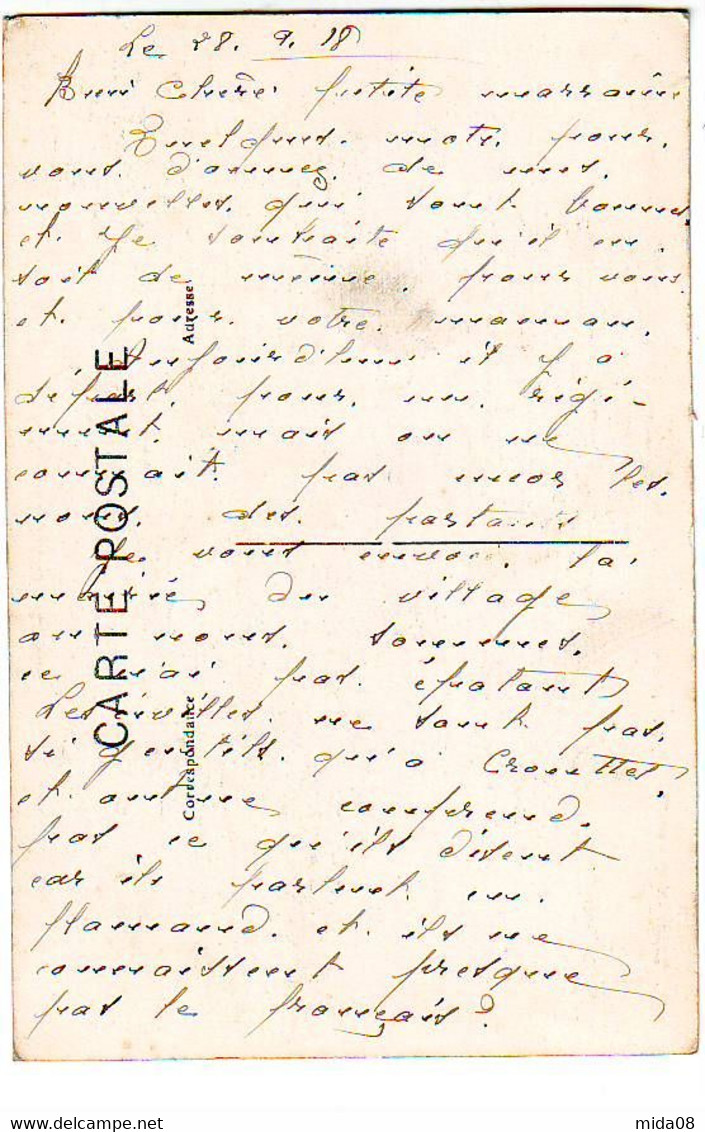 Le 28. 9. 18
Bien Chère petite marraine
Quelques. mots. pour.
vous. d'onnez. de mes.
nouvelles. qui sont bonnes.
et. Je souhaite qu'il en.
soit de même. pour vous
et. pour. votre. maman.
Aujourd'hui il y a
départ. pour. un. régi-
ment. mais on ne
connait. pas les.
noms. des. partants
Je vous envoi. la
mairie du village
ou nous. sommes.
ce n'ai pas. épatant
Les civilles. ne sont pas.
si gentils. qu'a Crouttes.
et on ne comprend.
pas ce qu'ils disent
car ils parlent en.
flamand. et. ils ne
connaissent presque
pas le français?
CARTE POSTALE
Correspondance
Adresse
delcampe.net
mida08